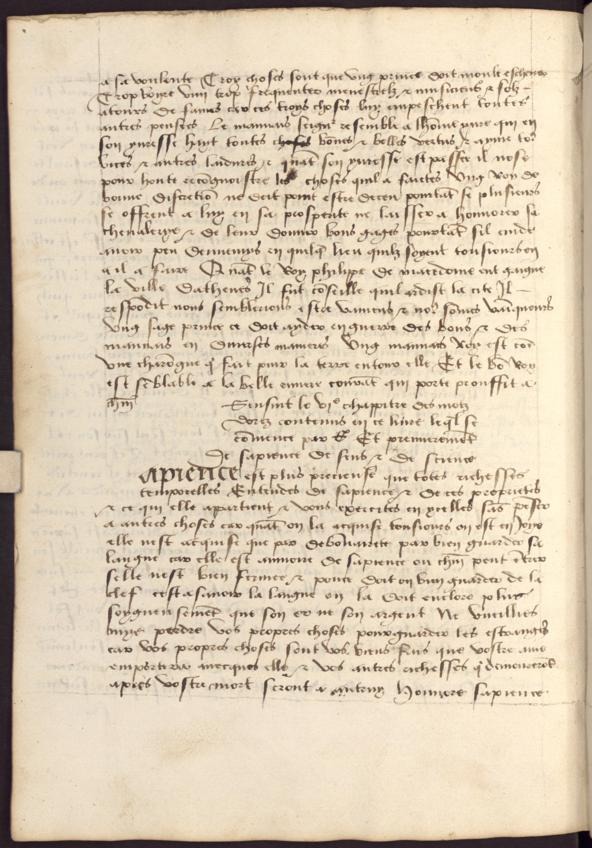 a sa voulente Troys choses sont que ung prince doit moult eschever
Trop boyre vin trop frequenter menestrelz & musiciens & soh-
aitours de fames car ces troys choses luy empeschent toutes
autres pensees Le mauvais seignr resemble a lhome yure qui en
son yuresse hayt toutes choses bones & belles vertus & ayme tos
vices & autres laidures & quat son yuresse est passee il nose
pour honte recongnoistre les choses quil a faictes Ung roy de
bonne discretion ne doit point estre deceu pourtat se plusieurs
se offrent a luy en sa prosperite ne laisser a honnorer sa
chevalerye & de leur donner bons gages pourtat sil cuide
avoir peu dennemys en quelq lieu quilz soyent tousiours en
a il a faire Quat le Roy philippe de macedone eut gaigne
la ville dathenes Il fut coseille quil ardist la cite Il
respodit nous semblerions estre vaincus & nos somes vainqueurs
Ung sage prince ce doit ayder en guerre des bons & des
mauvais en diverses manieres Ung mauvais Roy est coe
une charongne q fait puir la terre entour elle Et le bo Roy
est seblable a la belle riviere courat qui porte prouffit a
chun
Sensuit le vi chappitre des motz
dorez contenus en ce livre leql se
comence par S Et premieremet
De sapience de sens & de science
Sapience est plus precieuse que totes richesses
temporelles Entendes de sapience & de ces proprietes
& ce qui elle appartient & vous exercites en ycelles sas peser
a autres choses car quat on la acquise tousiours on est en joye
elle nest acquise que par debonairete par bien guarder sa
langue car elle est aumoire de sapience ou chun peut entrer
selle nest bien fermee & pource doit on bien guarder de la
clef cestassavoir la langue on la doit enclore plus
soygneusemet que son or ne son argent Ne vueillies
mye perdre vos propres choses pour guarder les estranges
car vos propres choses sont vos biens fais que vostre ame
emportera avecques elle & vos autres richesses q demoureret
apres vostre mort seront a autruy Honnore sapience